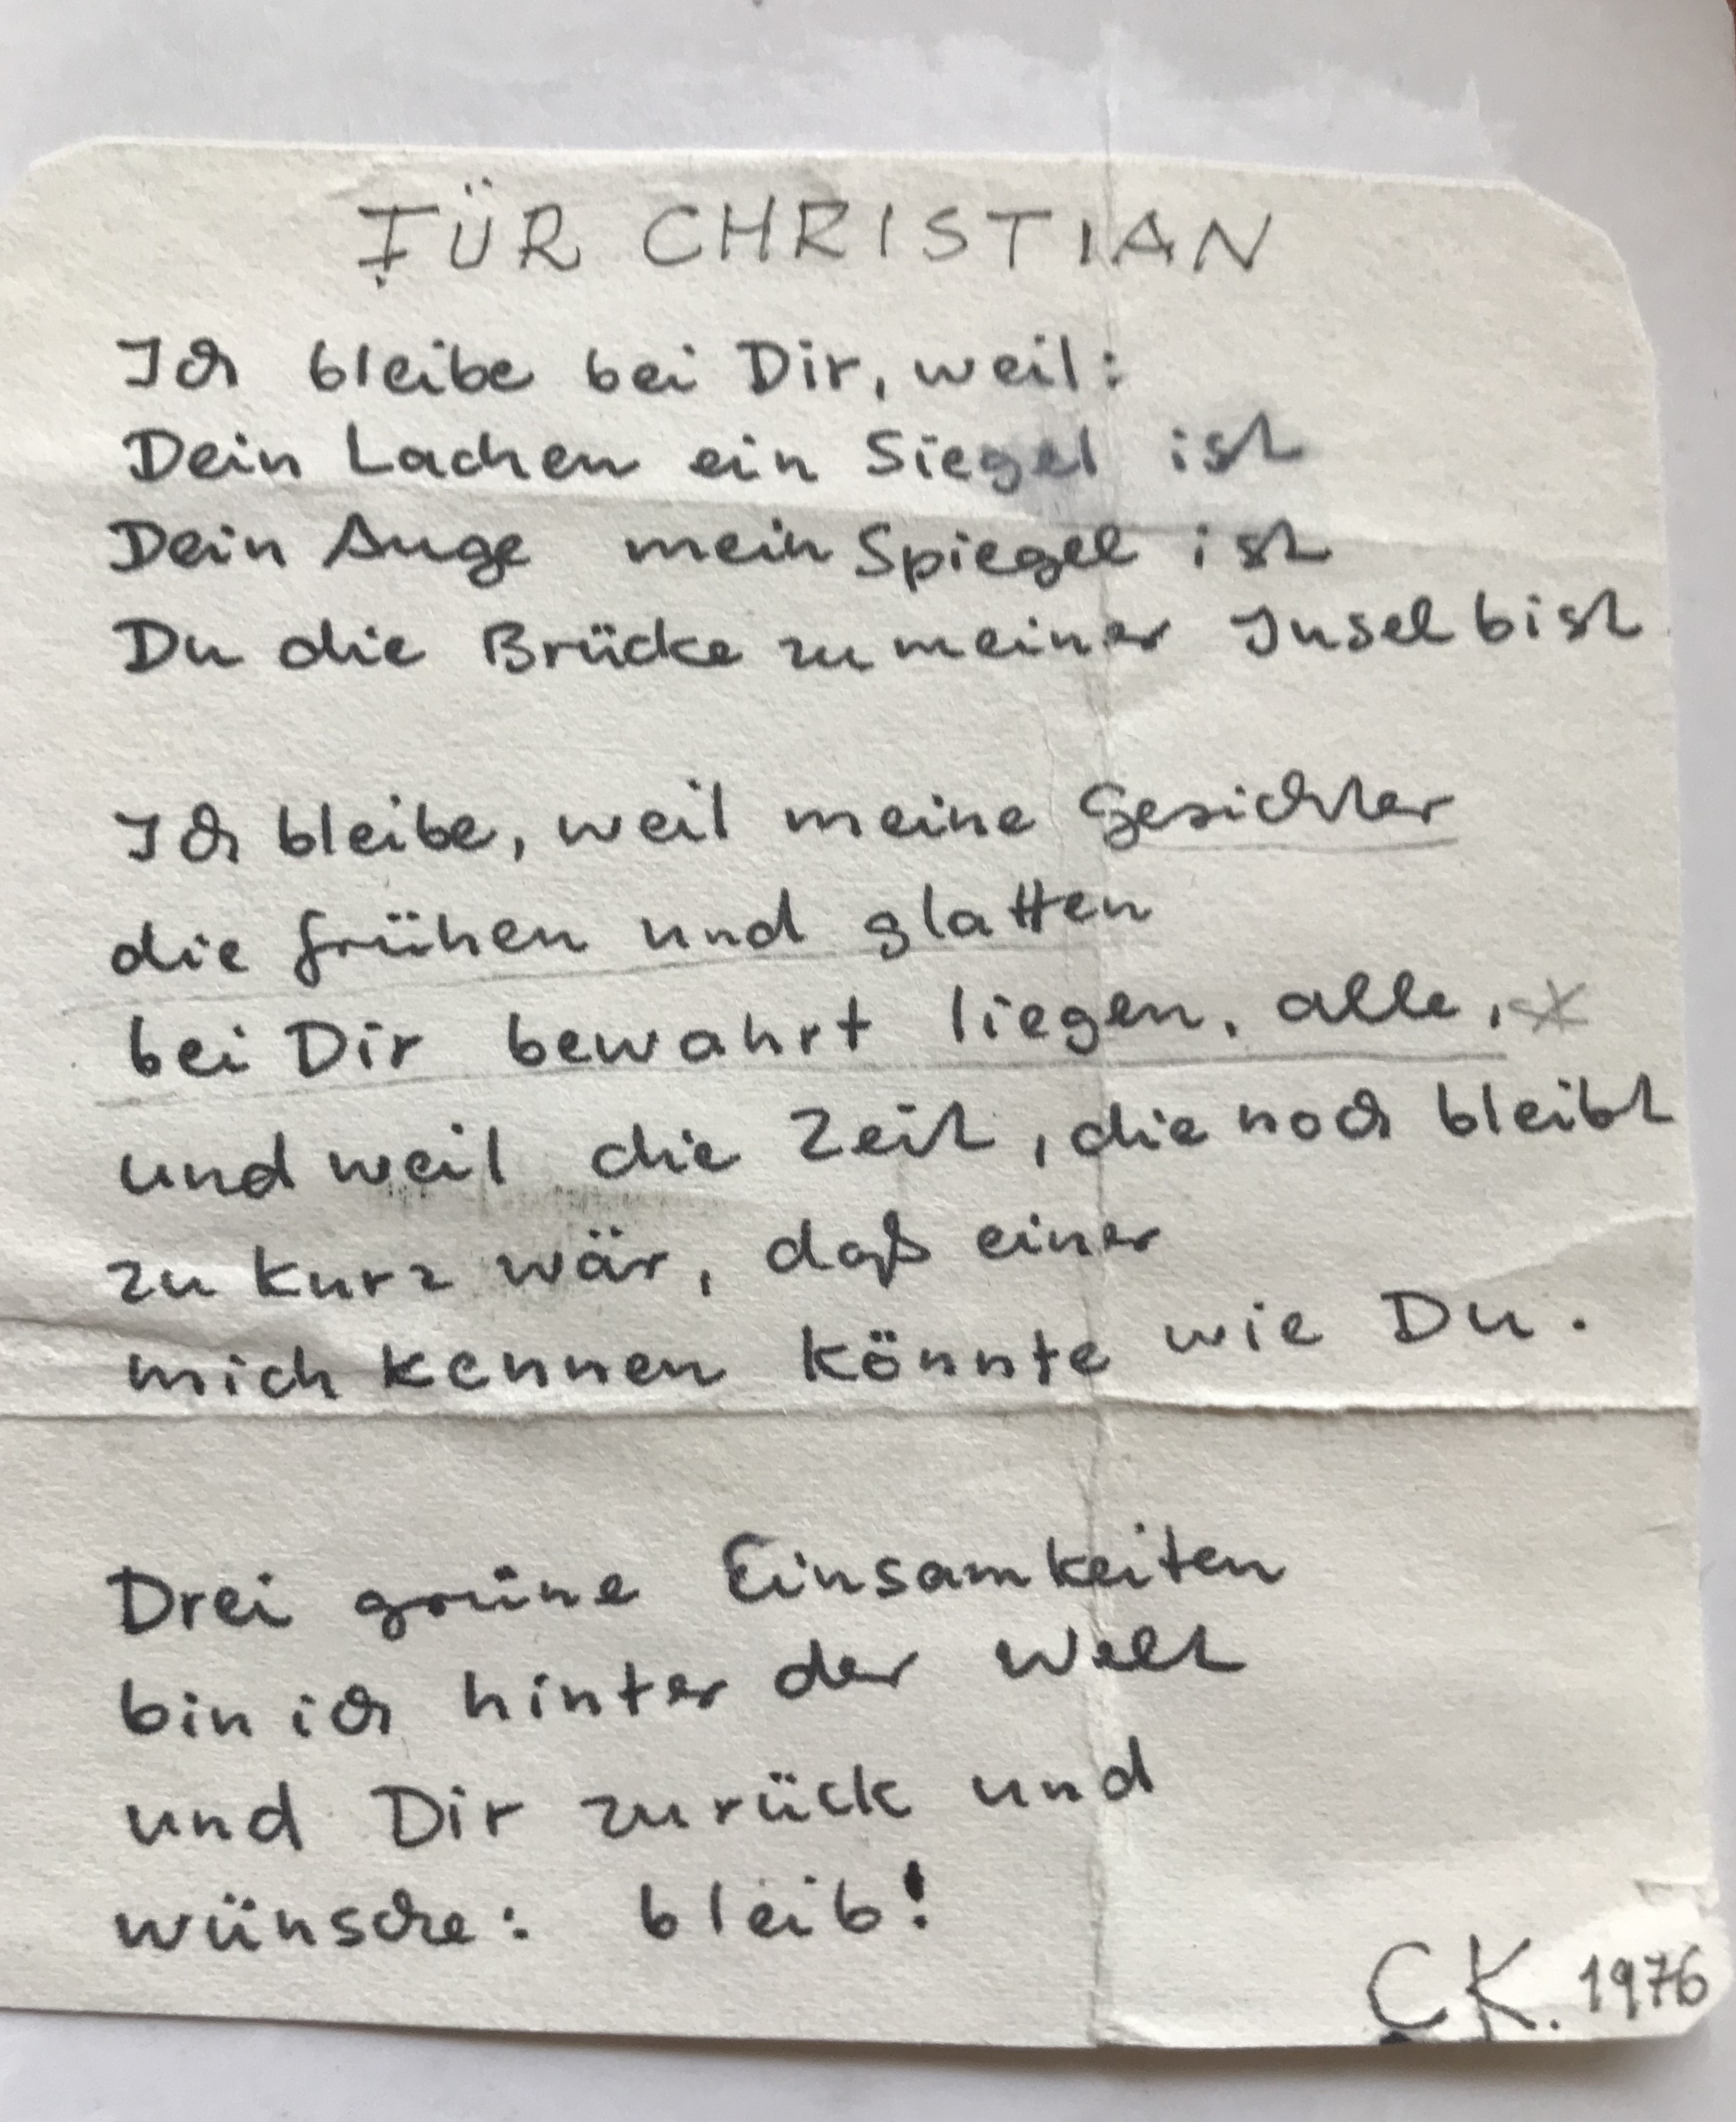 FÜR CHRISTIAN
Ich bleibe bei Dir, weil:
Dein Lachen ein Siegel ist
Dein Auge mein Spiegel ist
Du die Brücke zu meiner Insel bist
Ich bleibe, weil meine Gesichter
die frühen und glatten
bei Dir bewahrt liegen, alle, *
und weil die Zeit, die noch bleibt
zu kurz wär, daß einer
mich kennen könnte wie Du.
Drei grüne Einsamkeiten
bin ich hinter der Welt
und Dir zurück und
wünsche: bleib!
CK. 1976